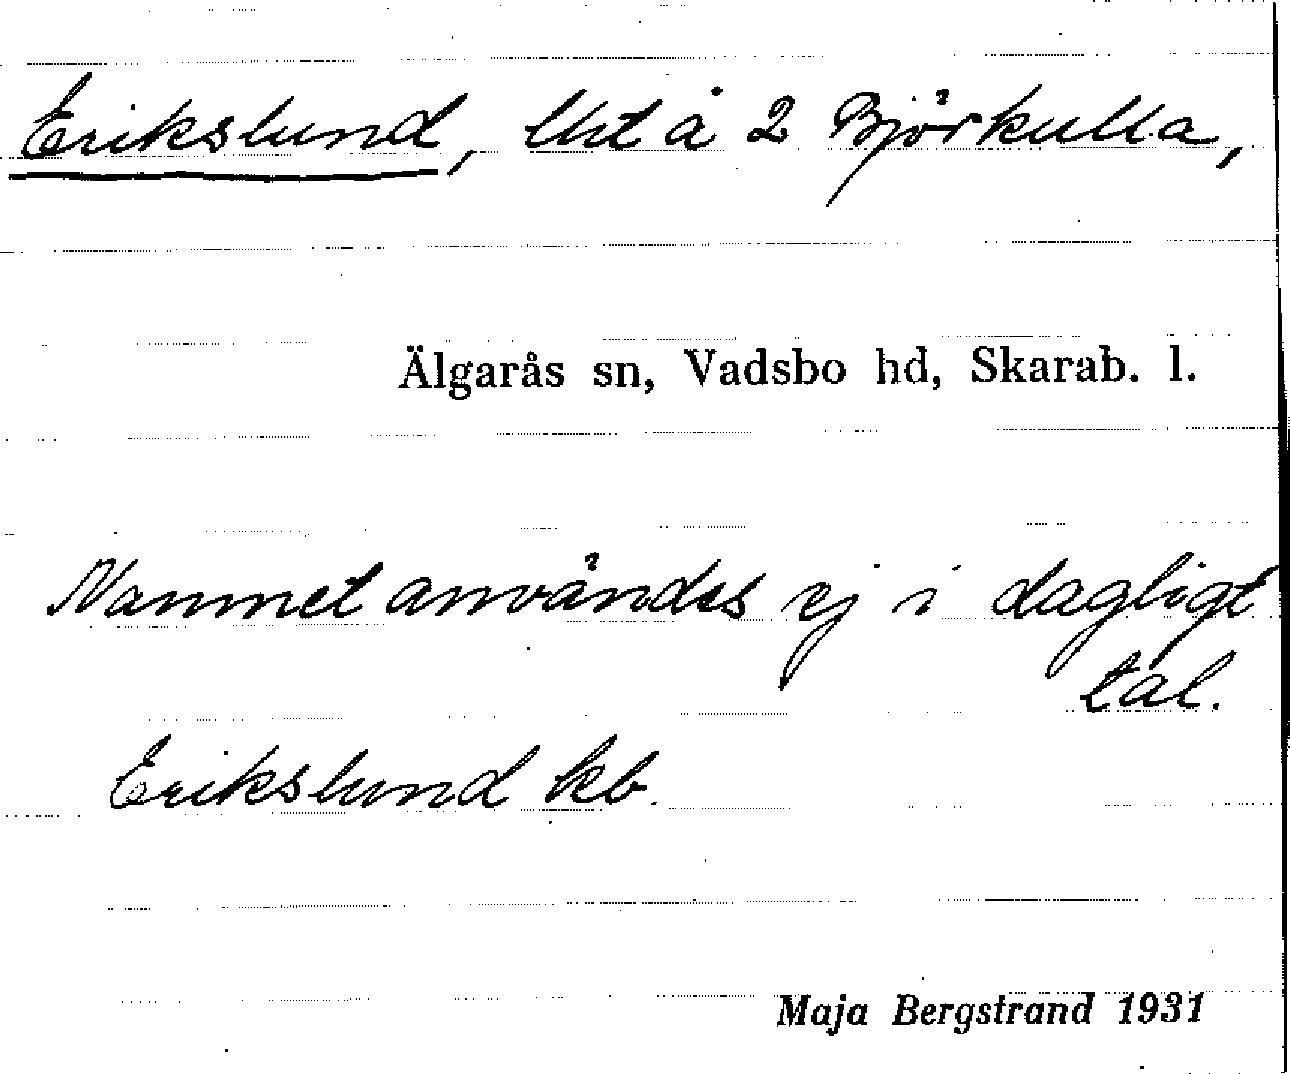 Erikslund, lht å 2 Björkulla,
Älgarås sn, Vadsbo hd, Skarab. l.
Namnet användes ej i dagligt
tal.
Erikslund kb.
Maja Bergstrand 1931